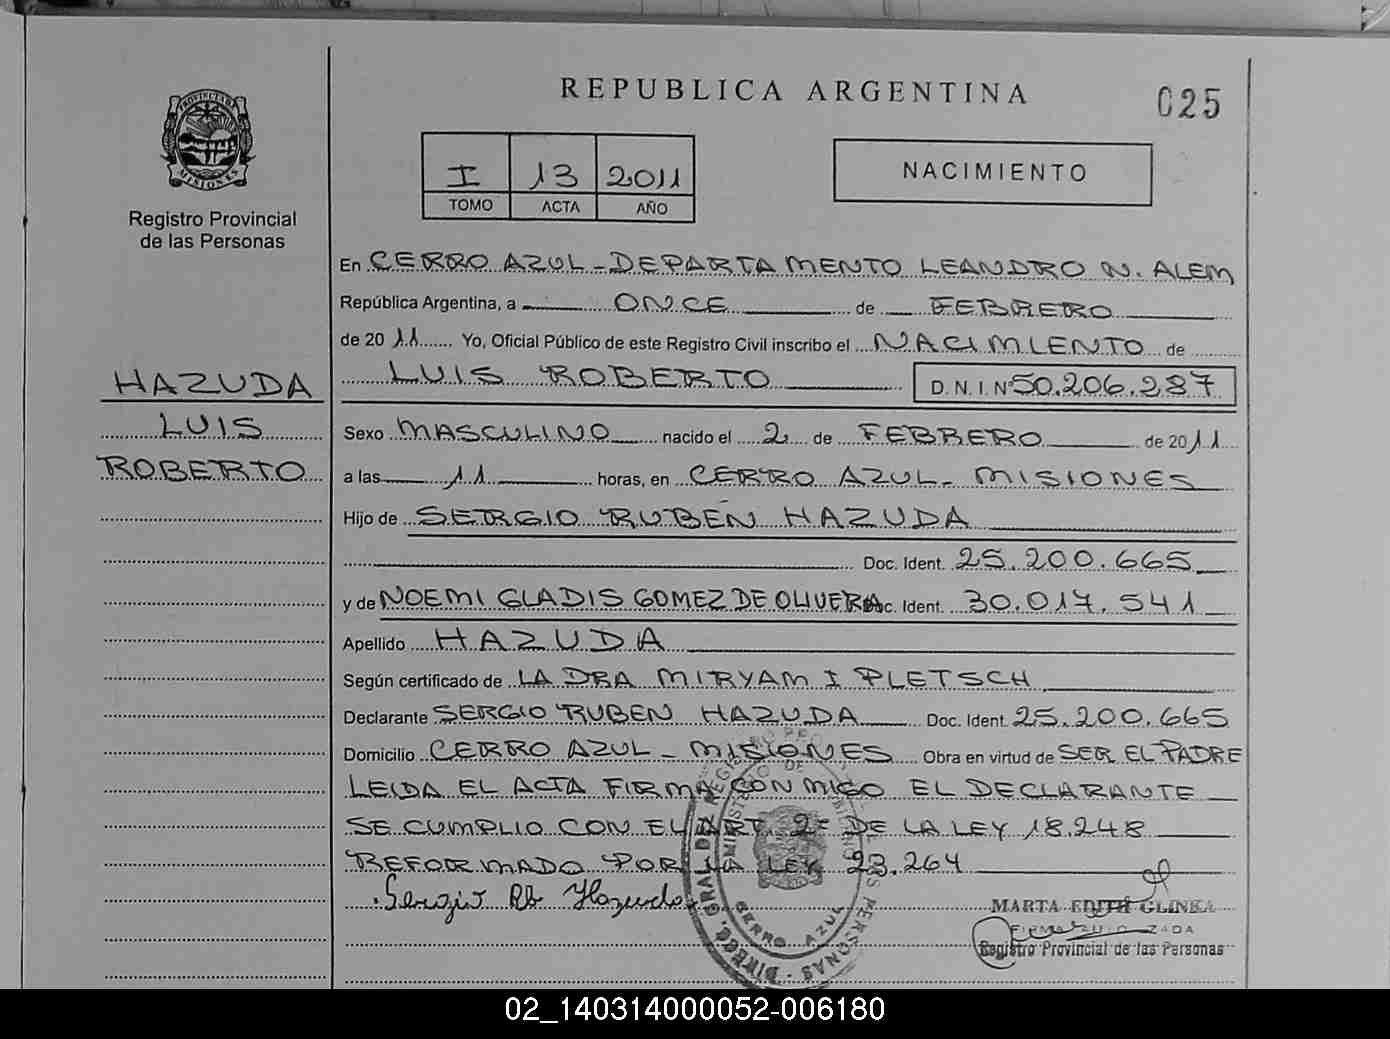 REPUBLICA ARGENTINA
025
PROVINCIA DE
MISIONES
Registro Provincial
de las Personas
I 13 2011
TOMO ACTA AÑO
NACIMIENTO
En CERRO AZUL - DEPARTAMENTO LEANDRO N. ALEM
República Argentina, a ONCE de FEBRERO
de 20 11 Yo, Oficial Público de este Registro Civil inscribo el NACIMIENTO de
HAZUDA
LUIS
ROBERTO
LUIS ROBERTO D.N.I.Nº 50.206.287
Sexo MASCULINO nacido el 2 de FEBRERO de 20 11
a las 11 horas, en CERRO AZUL - MISIONES
Hijo de SERGIO RUBÉN HAZUDA
Doc. Ident. 25.200.665
y de NOEMI GLADIS GOMEZ DE OLIVERA Doc. Ident. 30.017.541
Apellido HAZUDA
Según certificado de LA DRA MIRYAM I PLETSCH
Declarante SERGIO RUBEN HAZUDA Doc. Ident. 25.200.665
Domicilio CERRO AZUL - MISIONES Obra en virtud de SER EL PADRE
LEIDA EL ACTA FIRMA CONMIGO EL DECLARANTE
SE CUMPLIO CON EL ART. 2º DE LA LEY 18.248
REFORMADO POR LA LEY 23.264
Sergio Rb Hazuda
CERRO AZUL
MARTA EDITH GLINKA
Registro Provincial de las Personas
02_140314000052-006180